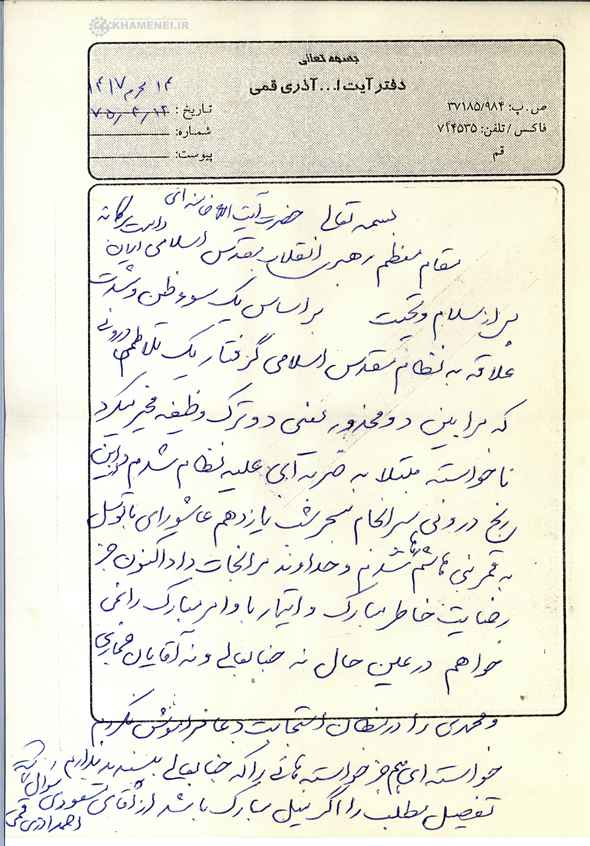 KHAMENEI.IR
بسمه تعالی
دفتر آیت ا... آذری قمی
ص.ب: ۳۷۱۸۵/۹۸۴
فاکس/تلفن: ۷۴۴۵۳۵
قم
۱۴ محرم ۱۴۱۷
تاریخ: ۷۵/۳/۱۲
شماره:
پیوست:
بسمه تعالی حضرت آیت الله خامنه‌ای دامت برکاته
مقام معظم رهبری انقلاب مقدس اسلامی ایران
پس از سلام و تحیت بر اساس یک سوءظن و شدت
علاقه به نظام مقدس اسلامی گرفتار یک تلاطم درونی
که مرا بین دو محذور یعنی دو ترک وظیفه مخیر میکرد
ناخواسته مبتلا به ضربه‌ای علیه نظام شدم و این
رنج درونی سرانجام سحر شب یازدهم عاشورای با توسل
به قمر بنی هاشم شدم و خداوند مرا نجات داد اکنون جز
رضایت خاطر مبارک و ایتمار با وامر مبارک را نمی
خواهم در عین حال نه جنابعالی و نه آقایان
و محمدی را در مظان استجابت دعا فراموش نکردم
خواسته‌ای هم جز خواسته‌هائی را که جنابعالی بپسندید ندارم
تفصیل مطلب را اگر میل مبارک باشد از آقای مسعودی سوال
احمد آذری قمی